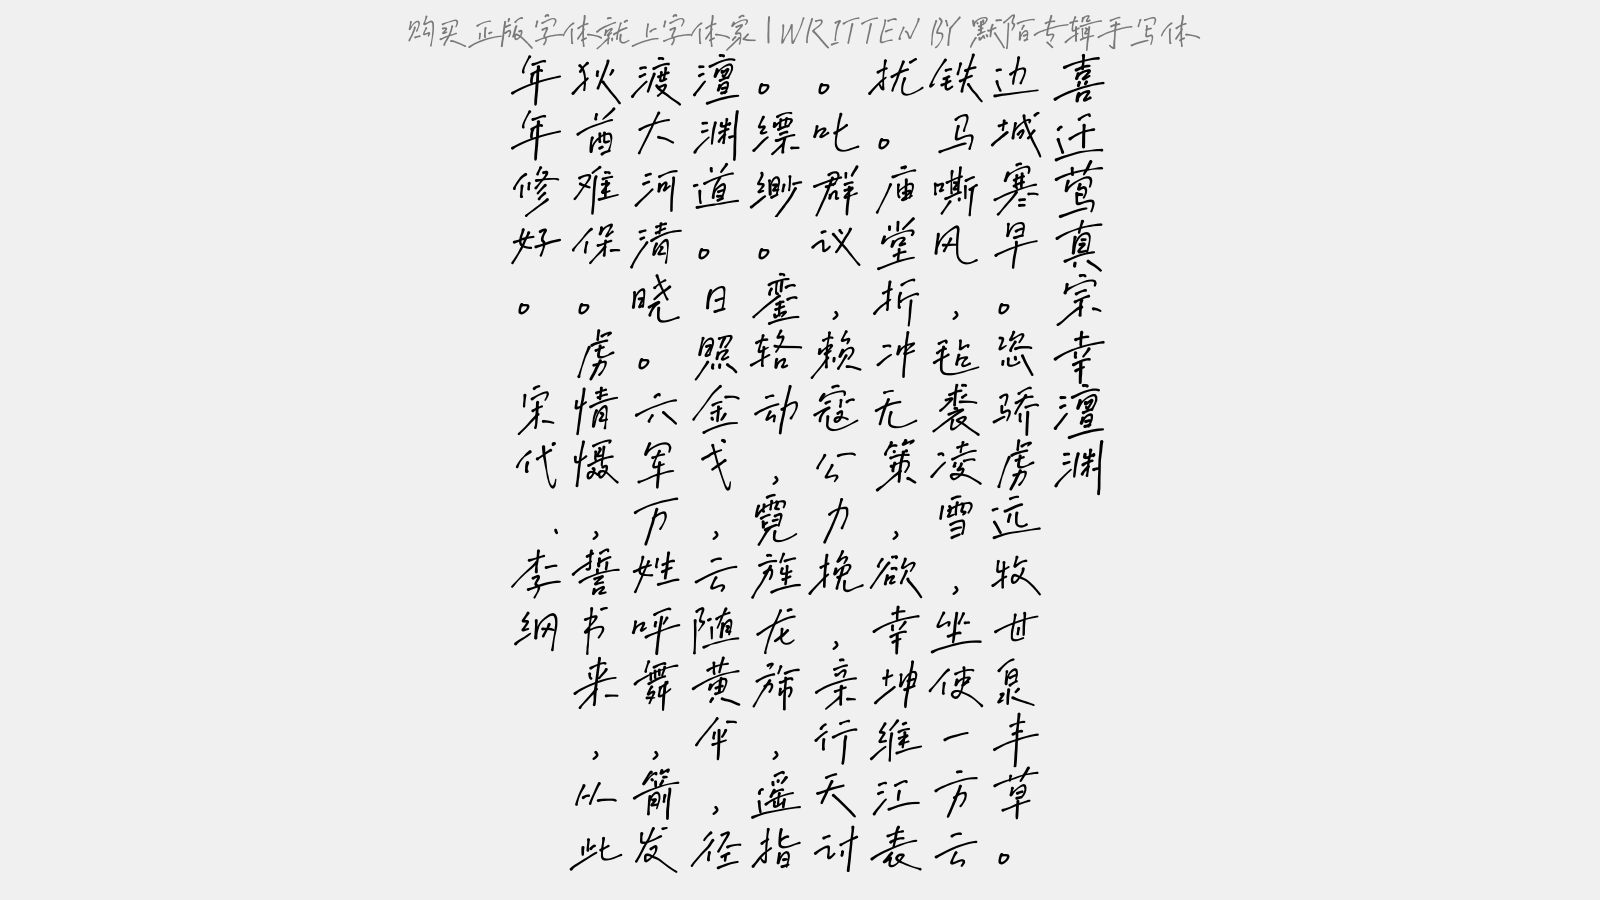 购买正版字体就上字体家 | WRITTEN BY 默陌专辑手写体
喜迁莺真宗幸澶渊
边城寒早。恣骄虏远牧甘泉丰草。
铁马嘶风，毡裘凌雪，坐使一方云
扰。庙堂折冲无策，欲幸坤维江表
。叱群议，赖寇公力挽，亲行天讨
。缥缈。銮辂动，霓旌龙旆，遥指
澶渊道。日照金戈，云随黄伞，径
渡大河清晓。六军万姓呼舞，箭发
狄酋难保。虏情慑，誓书来，从此
年年修好。 宋代、李纲